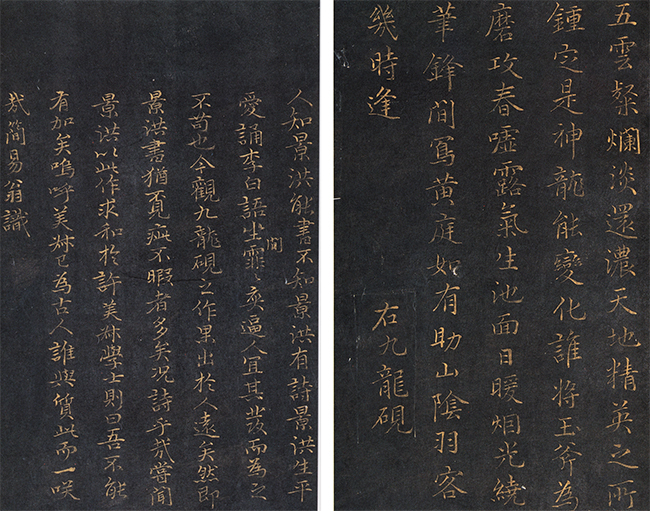 五雲粲爛淡還濃天地精英之所
鍾定是神龍能變化誰將玉斧為
磨攻春噓露氣生池面日暖烟光繞
筆鋒間寫黃庭如有助山陰羽客
幾時逢
右九龍硯
人知景洪能書不知景洪有詩景洪生平
愛誦李白語坐間霏霏逼人宜其發而為之
不苟也今觀九龍硯之作果出於人遠矣然即
景洪書猶覓疵不暇者多矣況詩乎哉嘗聞
景洪以此作求和於許美林學士則曰吾不能
有加矣嗚呼美林已為古人誰與質此而一咲
哉簡易翁識